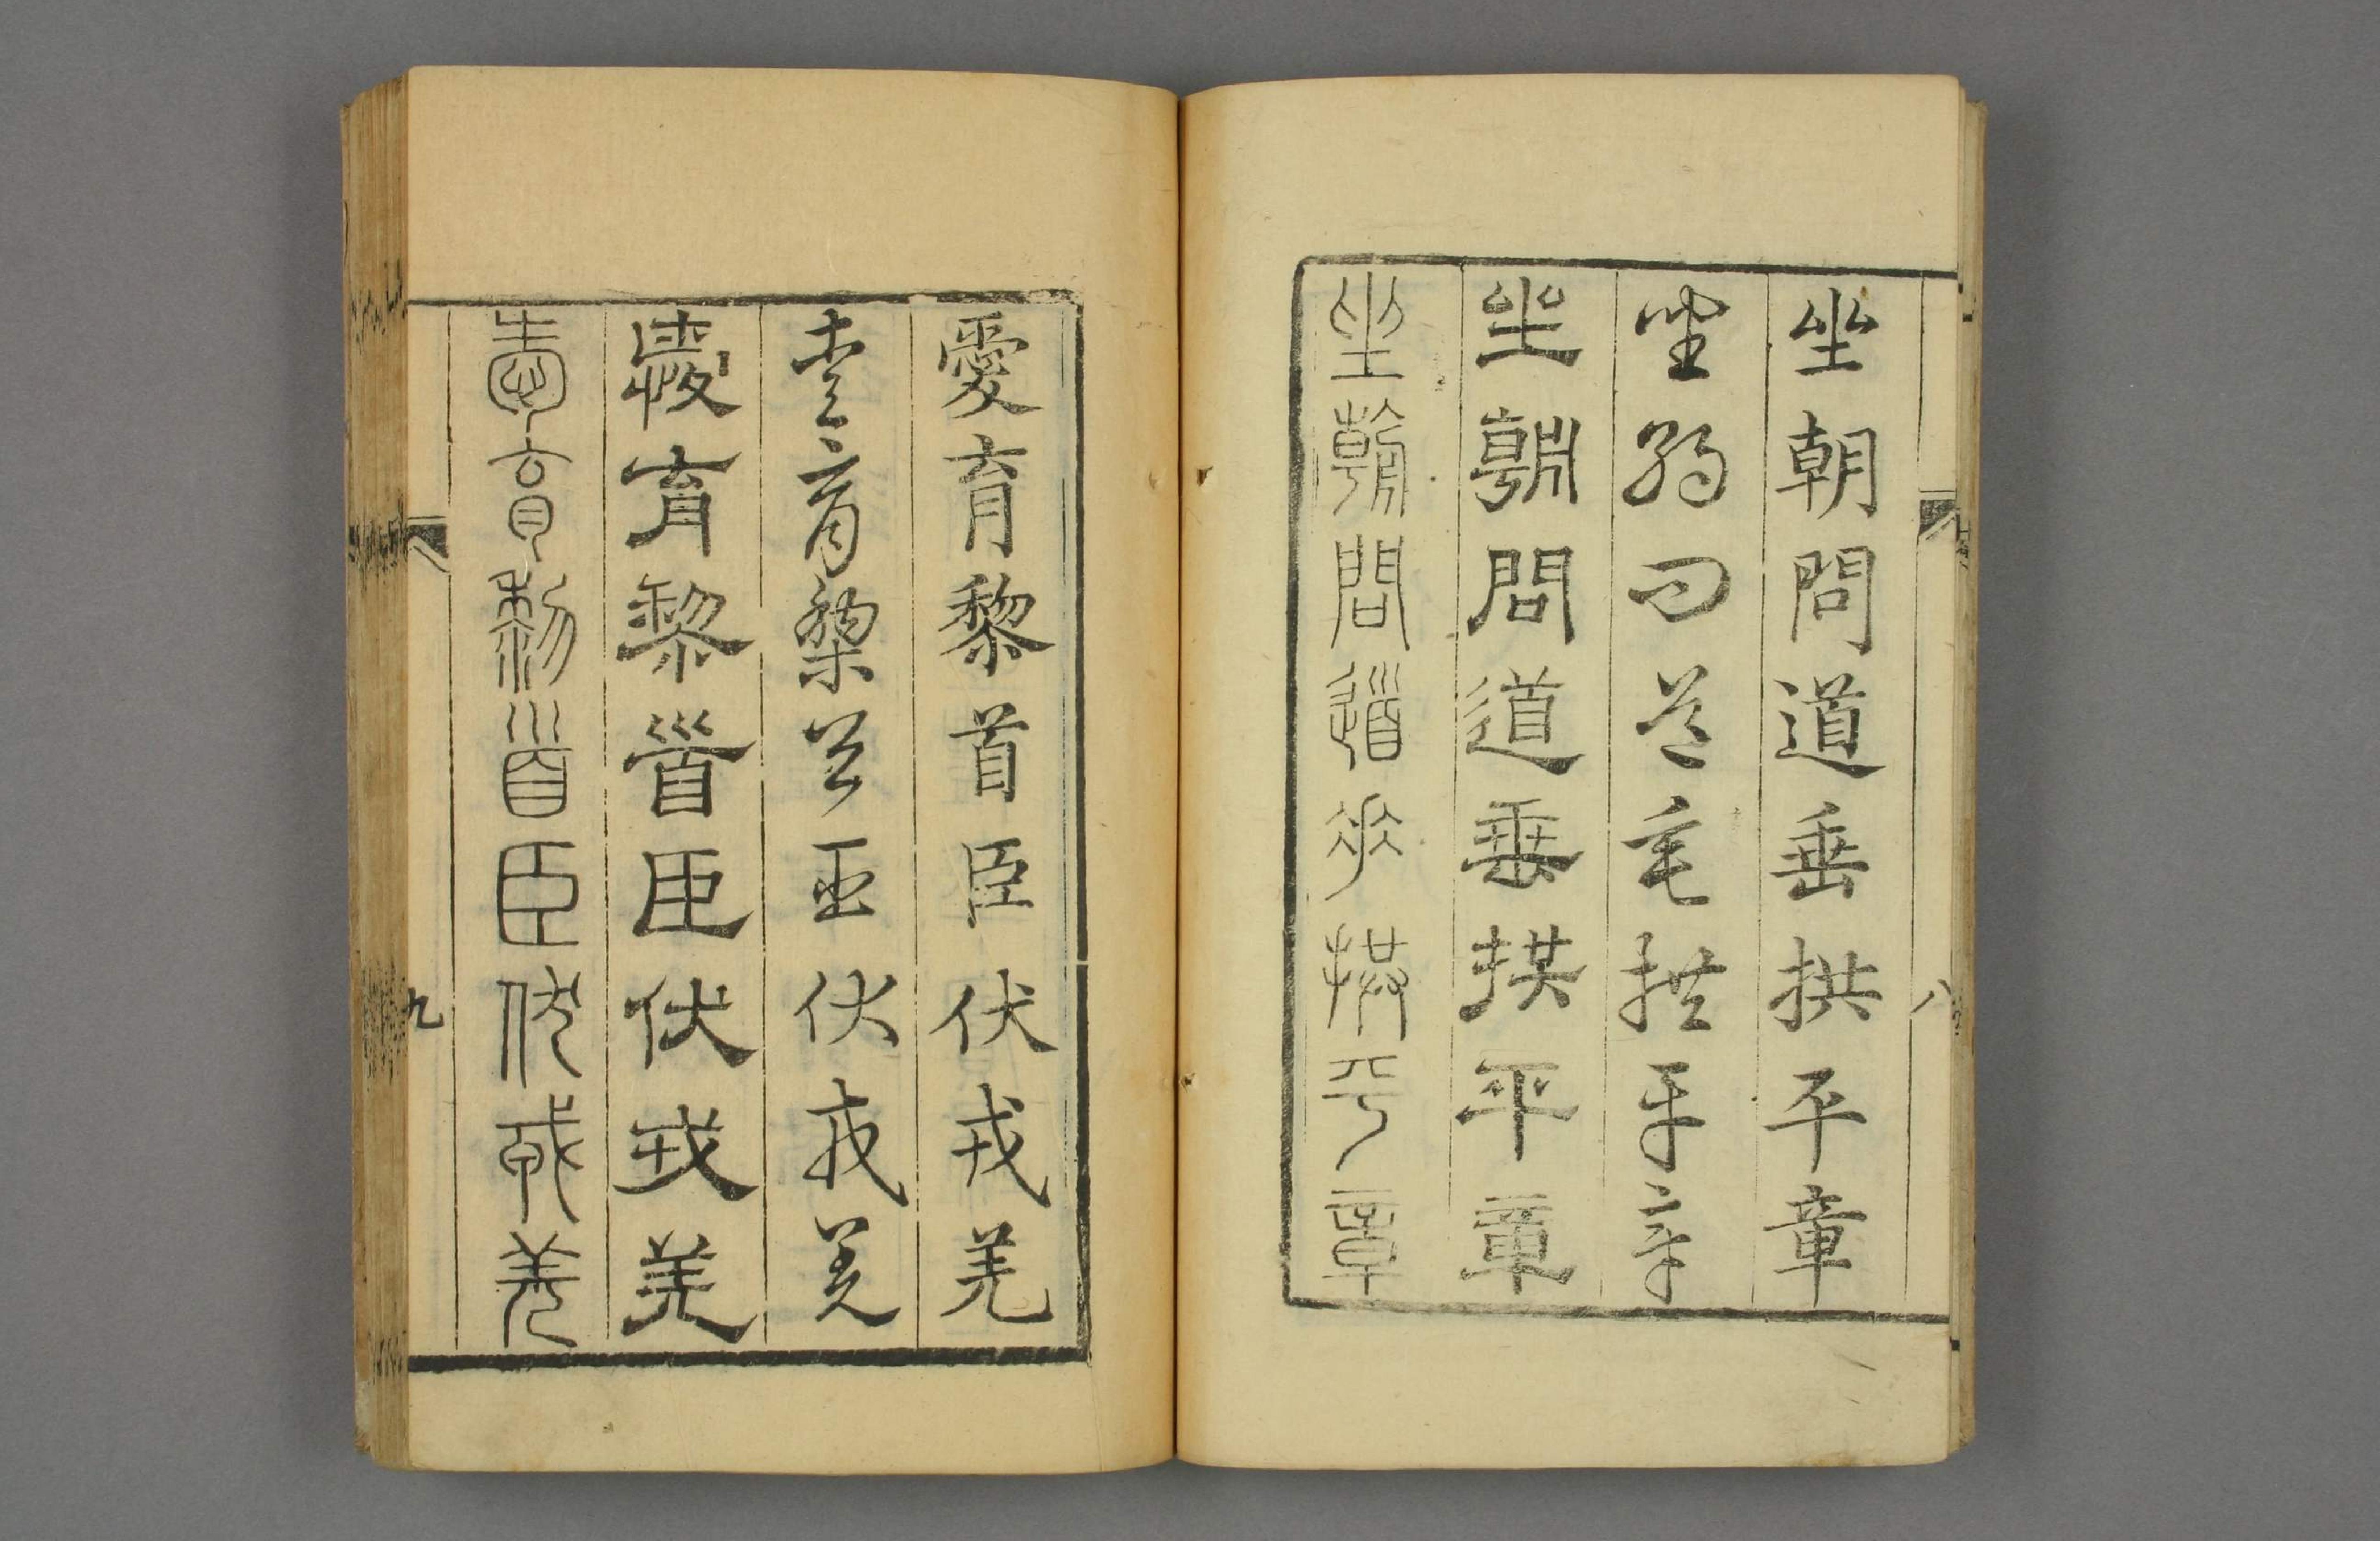 坐朝問道垂拱平章
坐朝問道垂拱平章
坐朝問道垂拱平章
坐朝問道垂拱平章
八
愛育黎首臣伏戎羌
愛育黎首臣伏戎羌
愛育黎首臣伏戎羌
愛育黎首臣伏戎羌
九